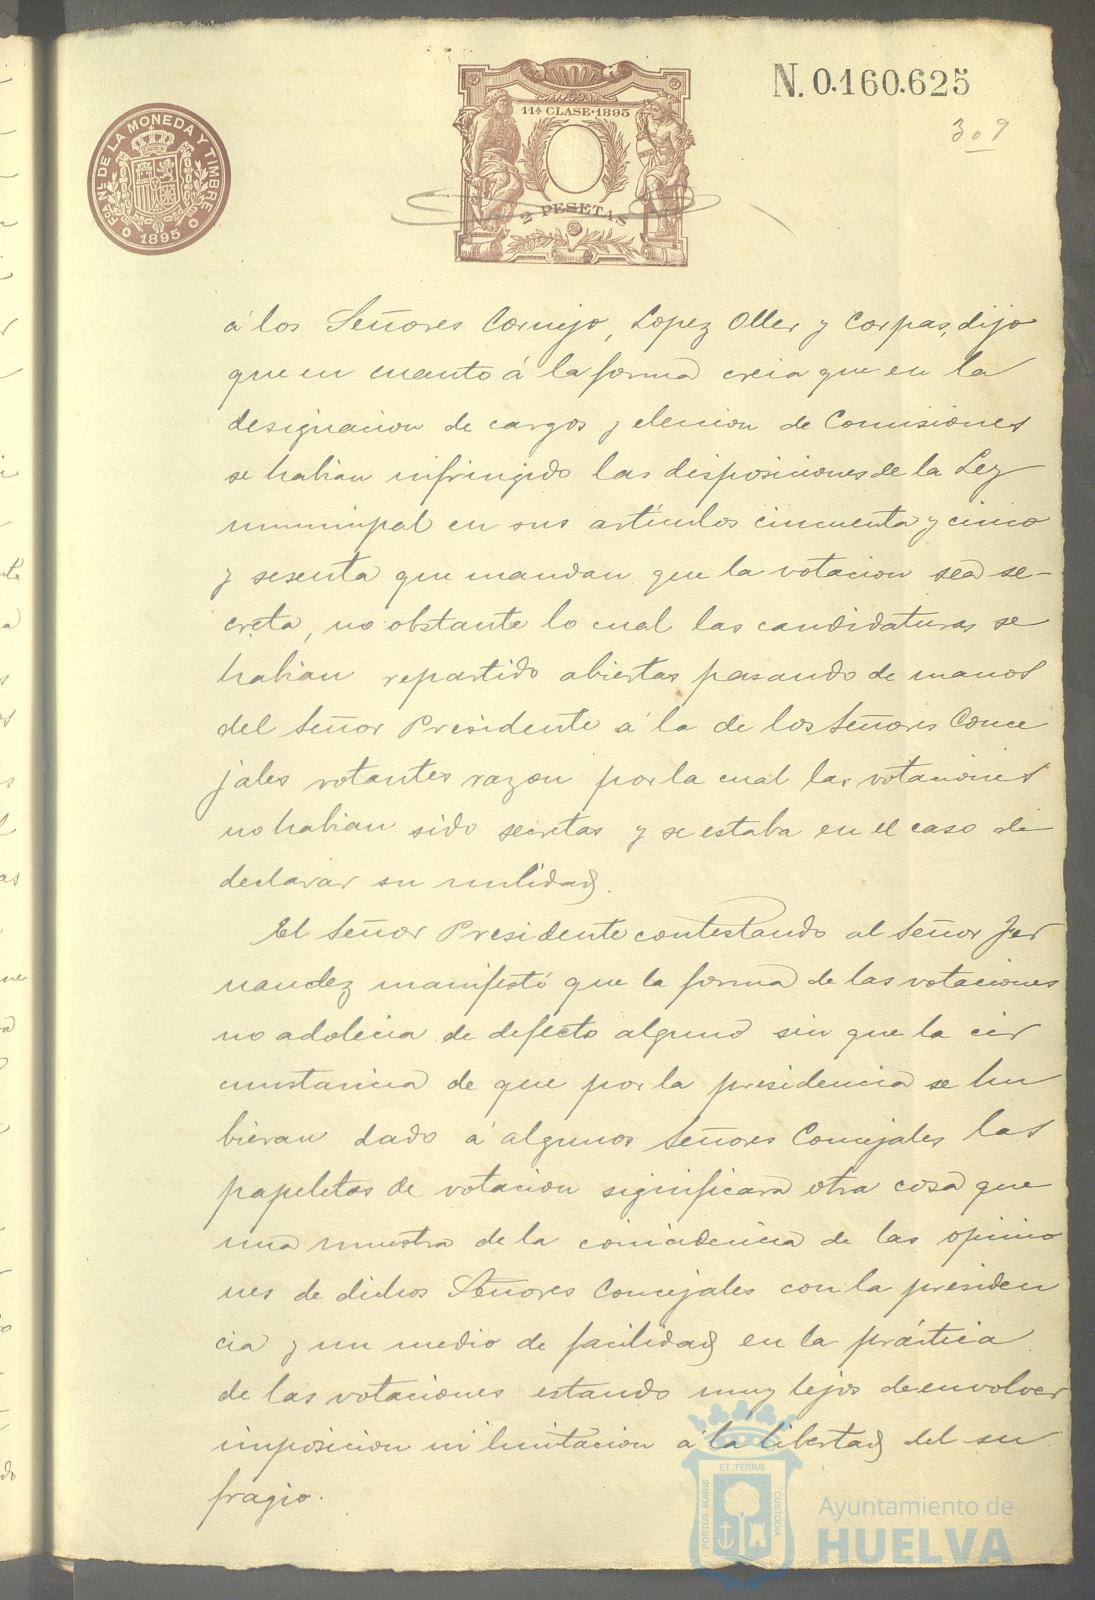 N. 0.160.625
309
Fca. NL. DE LA MONEDA Y TIMBRE
1895
11ª CLASE·1895
2 PESETAS
á los Señores Cornejo, Lopez Oller y Corpas, dijo
que en cuanto á la forma creia que en la
designacion de cargos y eleccion de Comisiones
se habian infringido las disposiciones de la Ley
municipal en sus artículos cincuenta y cinco
y sesenta que mandan que la votacion sea se-
creta, no obstante lo cual las candidaturas se
habian repartido abiertas pasando de manos
del Señor Presidente á la de los Señores Conce
jales votantes razon por la cual las votaciones
no habian sido secretas y se estaba en el caso de
declarar su nulidad.
El Señor Presidente contestando al Señor Fer
nandez manifestó que la forma de las votaciones
no adolecia de defecto alguno sin que la cir
cunstancia de que por la presidencia se hu
bieran dado á algunos Señores Concejales las
papeletas de votacion significara otra cosa que
una muestra de la coincidencia de las opinio
nes de dichos Señores Concejales con la presiden
cia y un medio de facilidad en la práctica
de las votaciones estando muy lejos de envolver
imposicion ni limitacion á la libertad del su
fragio.
PORTUS MARIS ET TERRÆ CUSTODIA
Ayuntamiento de
HUELVA